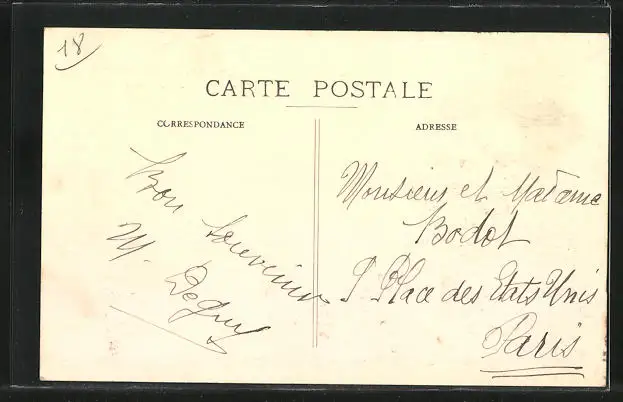 18
CARTE POSTALE
CORRESPONDANCE
ADRESSE
Bon Souvenir
M.
Monsieur et Madame
Bodot
Place des Etats Unis
Paris